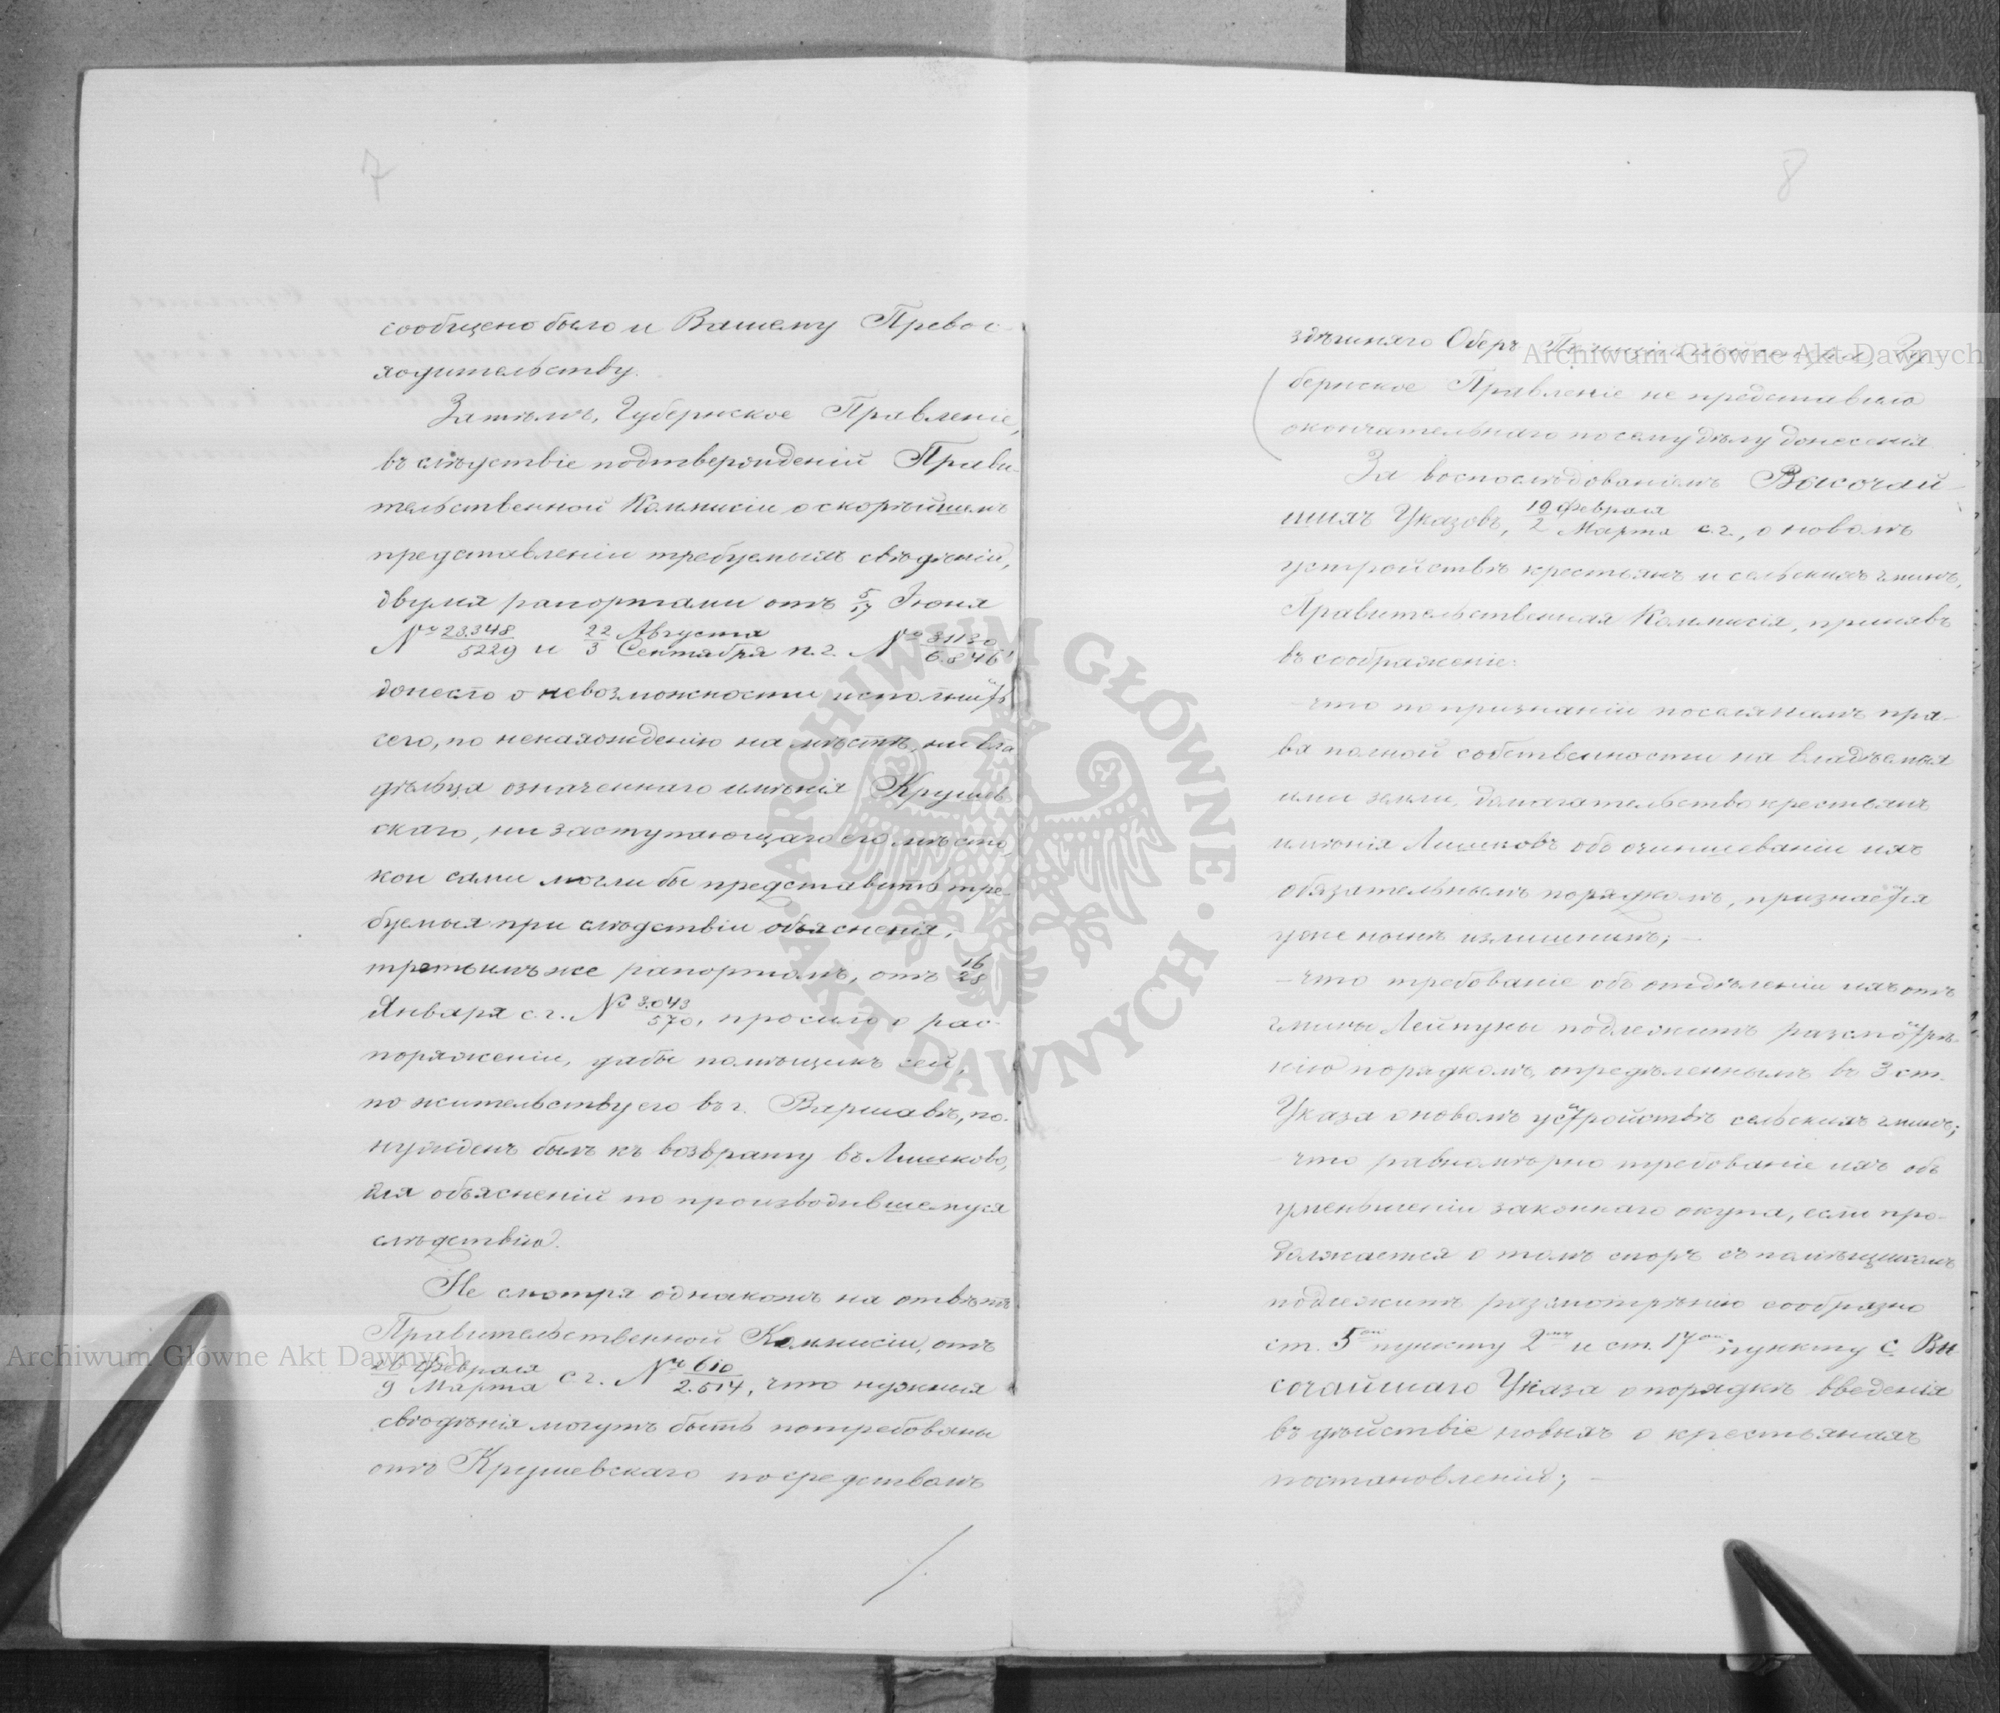 7
сообщено было и Вашему Превос-
ходительству.
Затѣмъ, Губернское Правленіе,
въ слѣдствіе подтвержденій Прави-
тельственной Коммисіи о скорѣйшемъ
представленіи требуемыхъ свѣдѣній,
двумя рапортами отъ 5/17 Іюня
№ 23.348/5229 и 22 Августа/3 Сентября п. г. № 31130/6.846
донесло о невозможности исполнить
сего, по ненахожденію на мѣстѣ, ни вла
дѣльца означеннаго имѣнія Крушев
скаго, ни заступающаго его мѣсто,
кои сами могли бы представить тре-
буемыя при слѣдствіи объясненія;
третьимъ же рапортомъ, отъ 16/28
Января с. г. № 3.043/570, просило о рас-
поряженіи, дабы помѣщикъ сей,
по жительству его въ г. Варшавѣ, по-
нужденъ былъ къ возврату въ Лишково,
для объясненій по производившемуся
слѣдствію.
Не смотря однакожъ на отвѣтъ
Правительственной Коммисіи, отъ
26 Февраля/9 Марта с. г. № 610/2.514, что нужныя
свѣдѣнія могутъ быть потребованы
отъ Крушевскаго посредствомъ
8
здѣшняго Оберъ Гу
бернское Правленіе не представило
окончательнаго по сему дѣлу донесенія.
За воспослѣдованіемъ Высочай-
шихъ Указовъ, 19 Февраля/2 Марта с. г., о новомъ
устройствѣ крестьянъ и сельскихъ гминъ,
Правительственная Коммисія, принявъ
въ соображеніе:
- что по признаніи поселянамъ пра-
ва полной собственности на владѣемыя
ими земли, домогательство крестьянъ
имѣнія Лишковъ объ очиншеваніи ихъ
обязательнымъ порядкомъ, признается
уже нынѣ излишнимъ; -
- что требованіе объ отдѣленіи ихъ отъ
гмины Лейпуны подлежитъ разсмотрѣ-
нію порядкомъ, опредѣленнымъ въ 3 ст.
Указа о новомъ устройствѣ сельскихъ гминъ;
- что равномѣрно требованіе ихъ объ
уменьшеніи законнаго окупа, если про-
должается о томъ споръ съ помѣщикомъ
подлежитъ разсмотрѣнію сообразно
ст. 5ой пункту 2му и ст. 17ой пункту с Вы
сочайшаго Указа о порядкѣ введенія
въ дѣйствіе новыхъ о крестьянахъ
постановленій; -
Archiwum Główne Akt Dawnych
Archiwum Główne Akt Dawnych
ARCHIWUM GŁÓWNE · AKT DAWNYCH ·